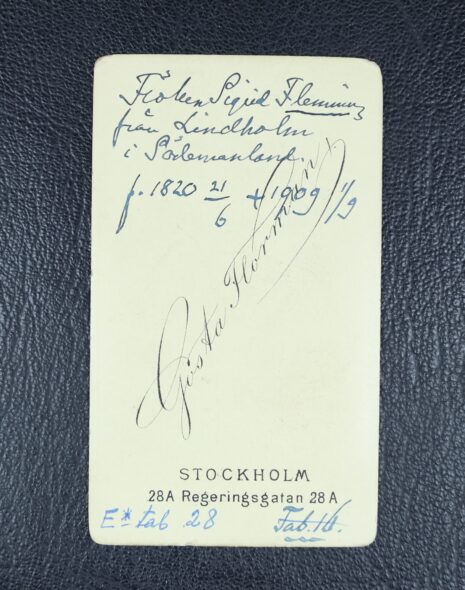 Fröken Sigrid Fleming
från Lindholm
i Södermanland.
f. 1820 21/6 + 1909 1/9
Gösta Florman
STOCKHOLM
28A Regeringsgatan 28A
tab 28